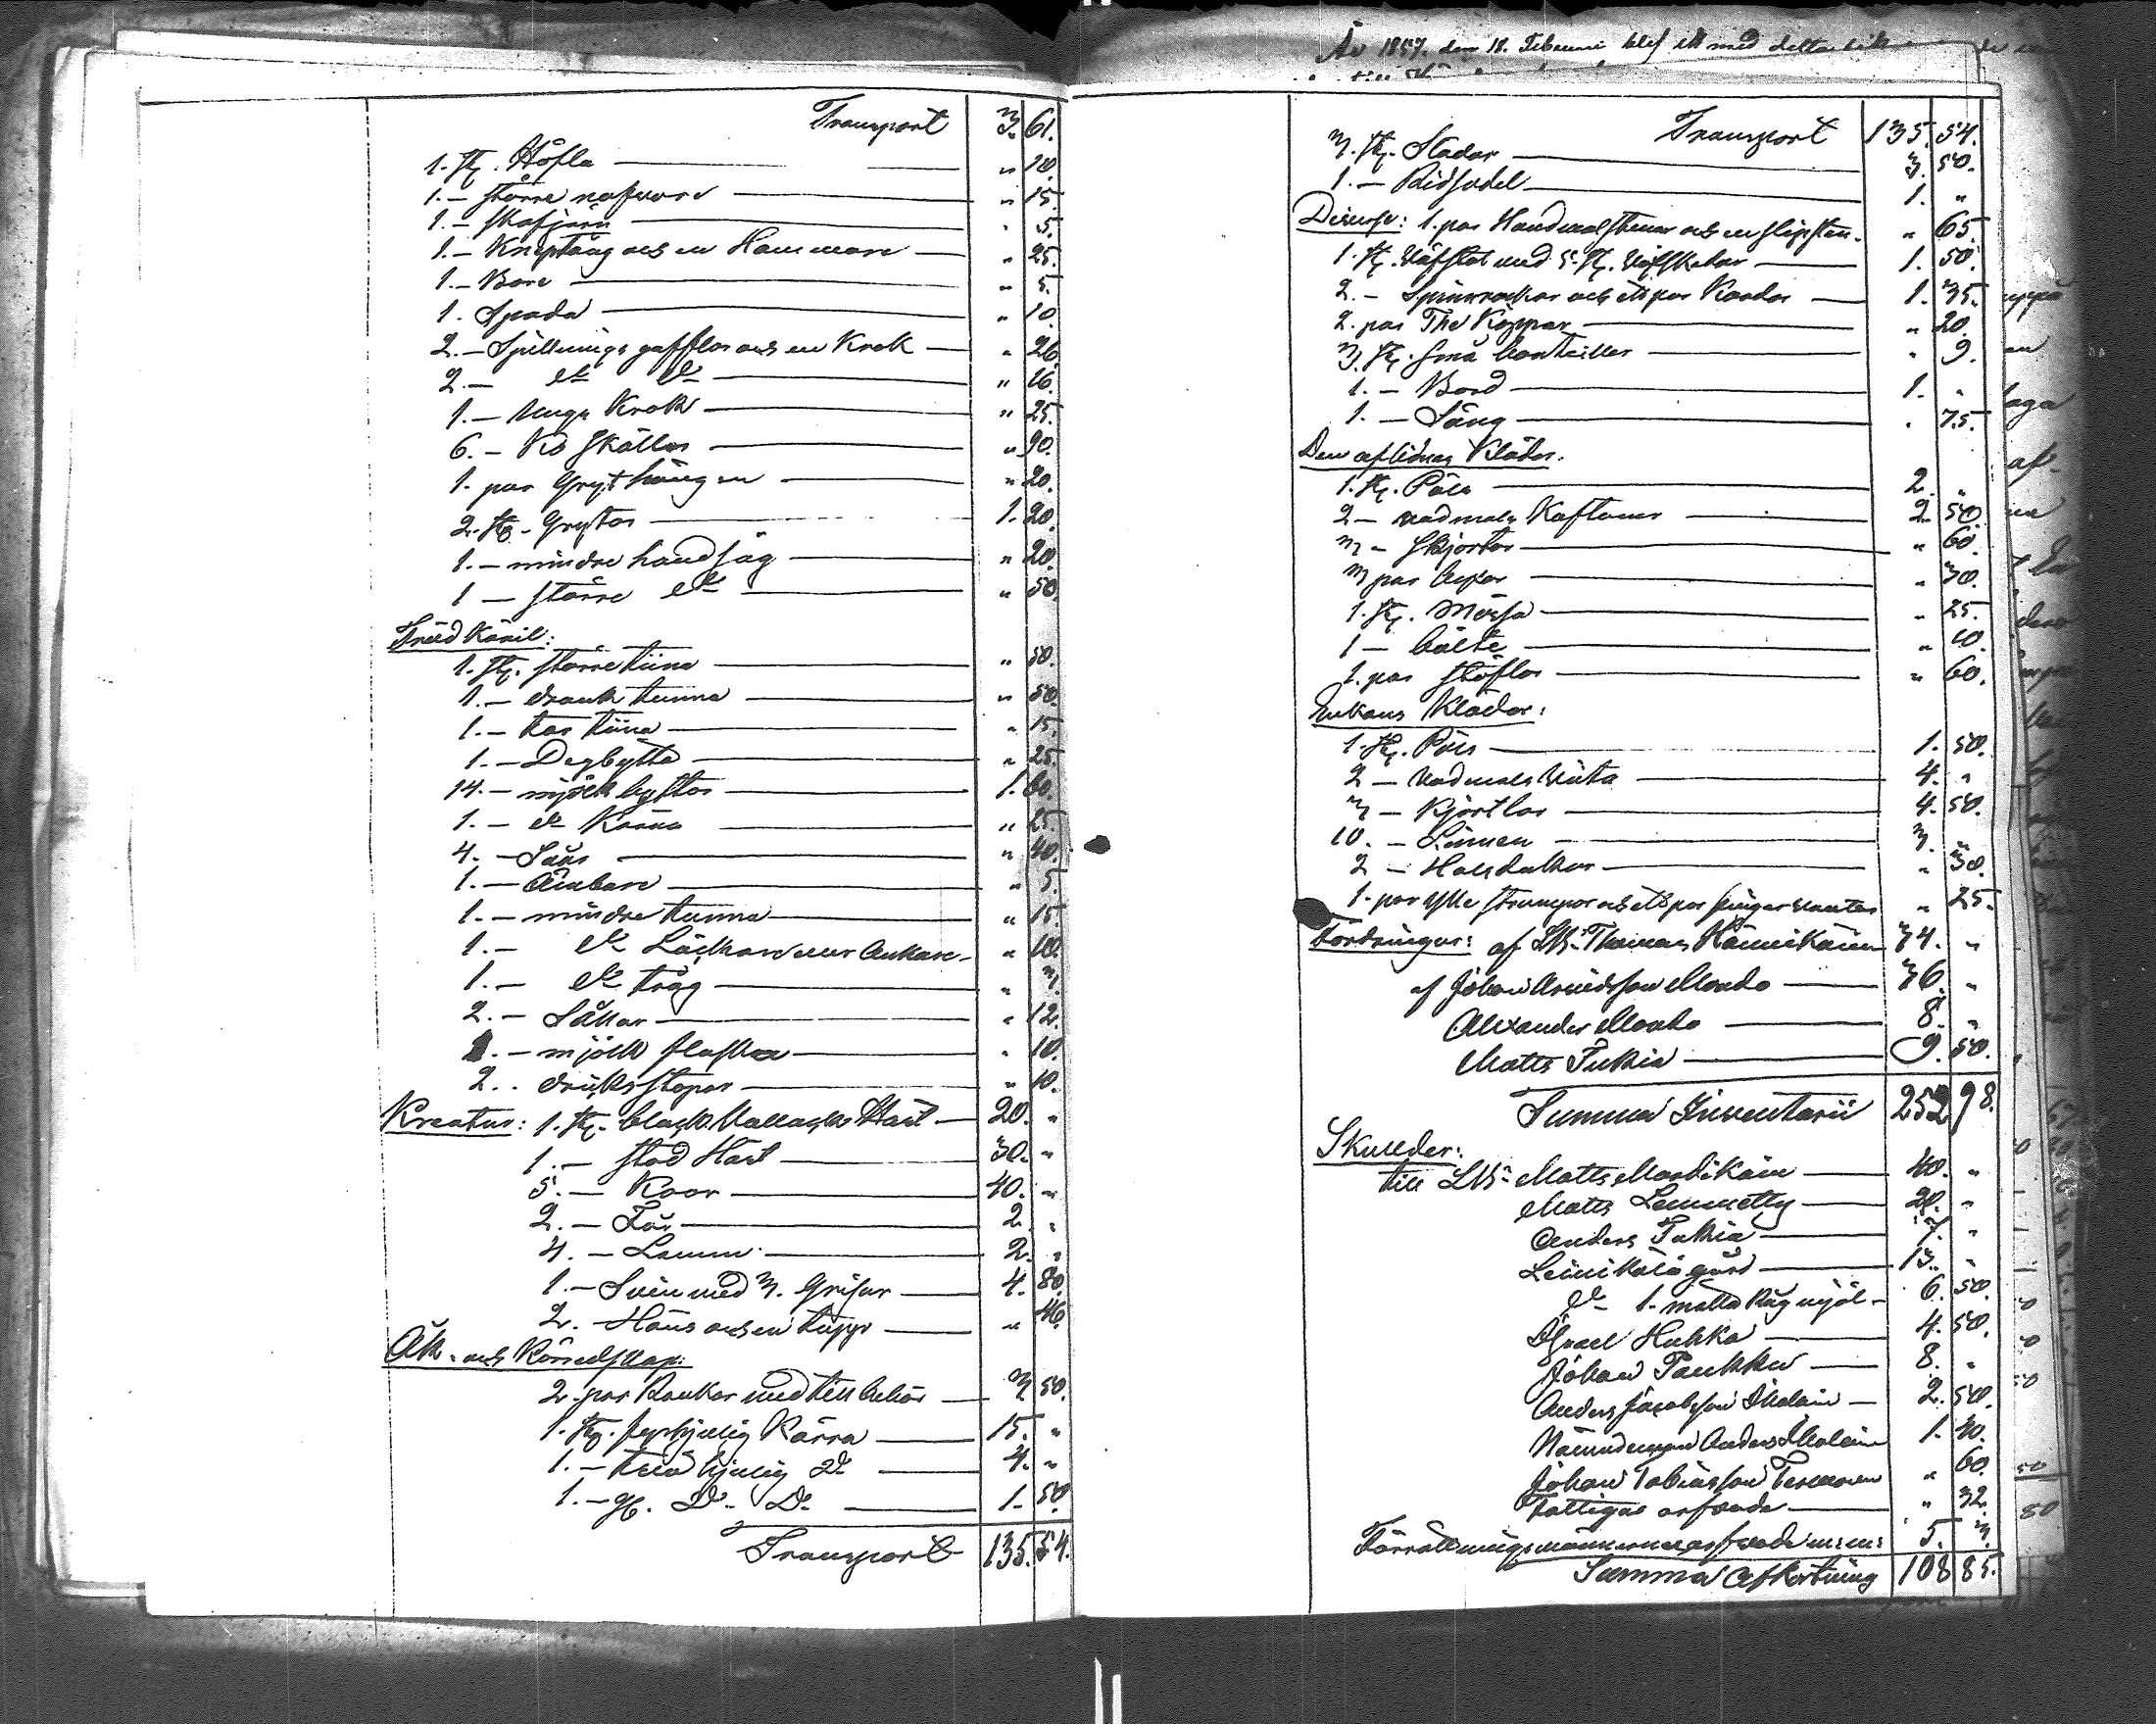 Transport 3. 61.
1. st. Höfla " 10.
1. – större nafvare " 15.
1. – skafjärn " 5.
1. – Kniptång och en Hammare " 25.
1. – Bore " 5.
1. Spada " 10.
2. – Spillnings gafflor och en Krok " 26.
2. – do do " 16.
1. – Ungs Krok " 25.
6. – Ko skällor " 90.
1. par Gryt hängen " 20.
2. st. Grytor 1. 20.
1. – mindre handsåg " 20.
1 – större do " 50.
Träd Käril:
1. st. större tiina " 50.
1. – drank tunna " 50.
1. – kar tiina " 15.
1. – Degbytta " 25.
14. – mjölk byttor 1. 60.
1. – do Kärna " 25.
4. – Såar " 40.
1. – Ämbare " 5.
1. – mindre tunna " 15.
1. – do Läckare eller Ankare " 10.
1. – do tråg " 3.
2. – Sållar " 12.
1. – mjölk flaska " 10.
2. . dricks stopar " 10.
Kreatur: 1. st. black Vallacks Häst 20. "
1. – stod Häst 30. "
5. – Koor 40. "
2. – Får 2. "
4. – Lamm 2. "
1. – Svin med 3. Grisar 4. 80.
2. – Höns och en tupp " 46.
Åk- och Köreedskap:
2. par Rankor med till behör 3. 50.
1. st. fyrhjulig Kärra 15. "
1. – två hjulig Do 4. "
1. – gl. Do Do 1. 50.
Transport 135. 54.
År 1857. den 18. Februari blef ett med detta
till
Transport 135. 54.
3. st. Sladar 3. 50.
1. – Ridsadel 1. "
Diverse: 1. par Handmalstenar och en slipsten. " 65.
1. st. Väfstol med 5. st. Väfskedar 1. 50.
2. – Spinnrockar och ett par Kardor 1. 35.
2. par The Koppar " 20.
3. st. små bouteiller " 9.
1. – Bord 1. "
1. – Säng " 75.
Den aflidnes Kläder.
1. st. Päls 2. "
2 – vadmals Kaftaner 2. 50.
3 – skjortor " 60.
3 par byxor " 30.
1. st. Mössa " 25.
1 – bälte " 10.
1. par stöflor " 60.
Enkans Kläder:
1. st. Päls 1. 50.
2 – vadmals 4. "
3 – Kjortlar 4. 50.
10. – Linnen 3. "
2 – Halsdukar " 30.
1. par ylle strumpor och ett par finger vantar " 25.
Fordringar: af Lbn Thomas Hännikäin 34. "
af Johan Arvidsson Mando 36. "
Alexander Mando 8. "
Matts Tukia 9. 50.
Summa Inventarii 252 98.
Skulder:
till Lbn Matts Mardikäin 40. "
Matts Lemmetty 20. "
Anders Tukia 7. "
Leinikälä gård 13. "
do 1. matta Rågmjöl 6. 50.
Israel Hukka 4. 50.
Johan Paukku 8. "
Anders Jacobsson Iholain 2. 50.
Nämndeman Anders Iholain 1. 40.
Johan Tobiasson " 60.
Fattigas arfvode " 32.
Förrättningsmännernes arfvode m:m: 5. 3.
Summa Afkortning 108 85.